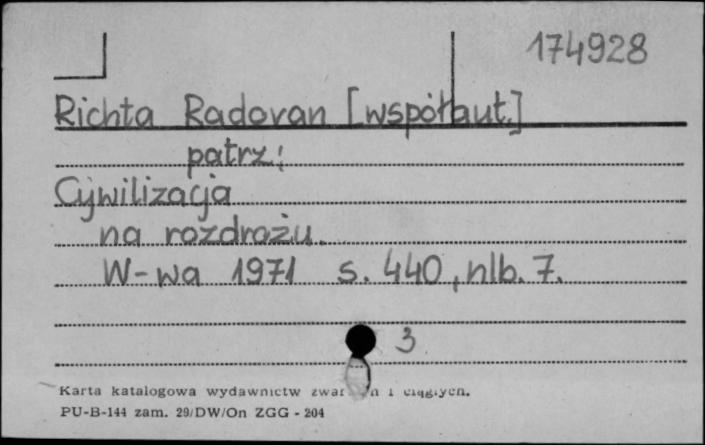 174928
Richta Radovan [współaut.]
patrz:
Cywilizacja
na rozdrożu.
W-wa 1971 s. 440, nlb. 7.
3
Karta katalogowa wydawnictw i ciągłych.
PU-B-144 zam. 29/DW/On ZGG - 204